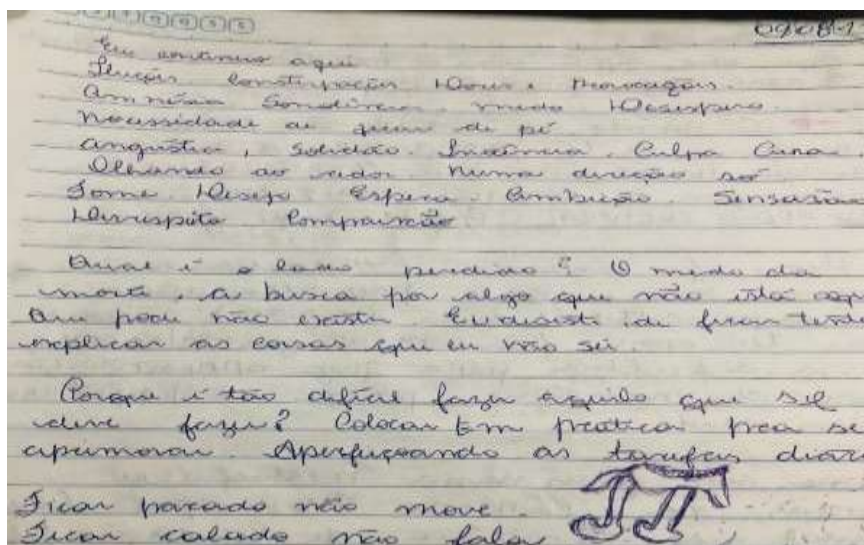 Eu continuo aqui
constipações Dores e
medo Desespero
Necessidade de ficar de pé
angustia, solidão. Culpa
Olhando ao redor numa direção só
Fome Desejo Espera Ambição Sensação
Desrespeito Comparação
Qual é o lado perdido? O medo da
morte, a busca por algo que não está
Que pode não existir. Eu desisti de ficar
explicar as coisas que eu não sei.
Porque é tão difícil fazer aquilo que se
deve fazer? Colocar Em pratica pra se
aprimorar. Aperfeiçoando as tarefas
Ficar parado não move.
Ficar calado não fala